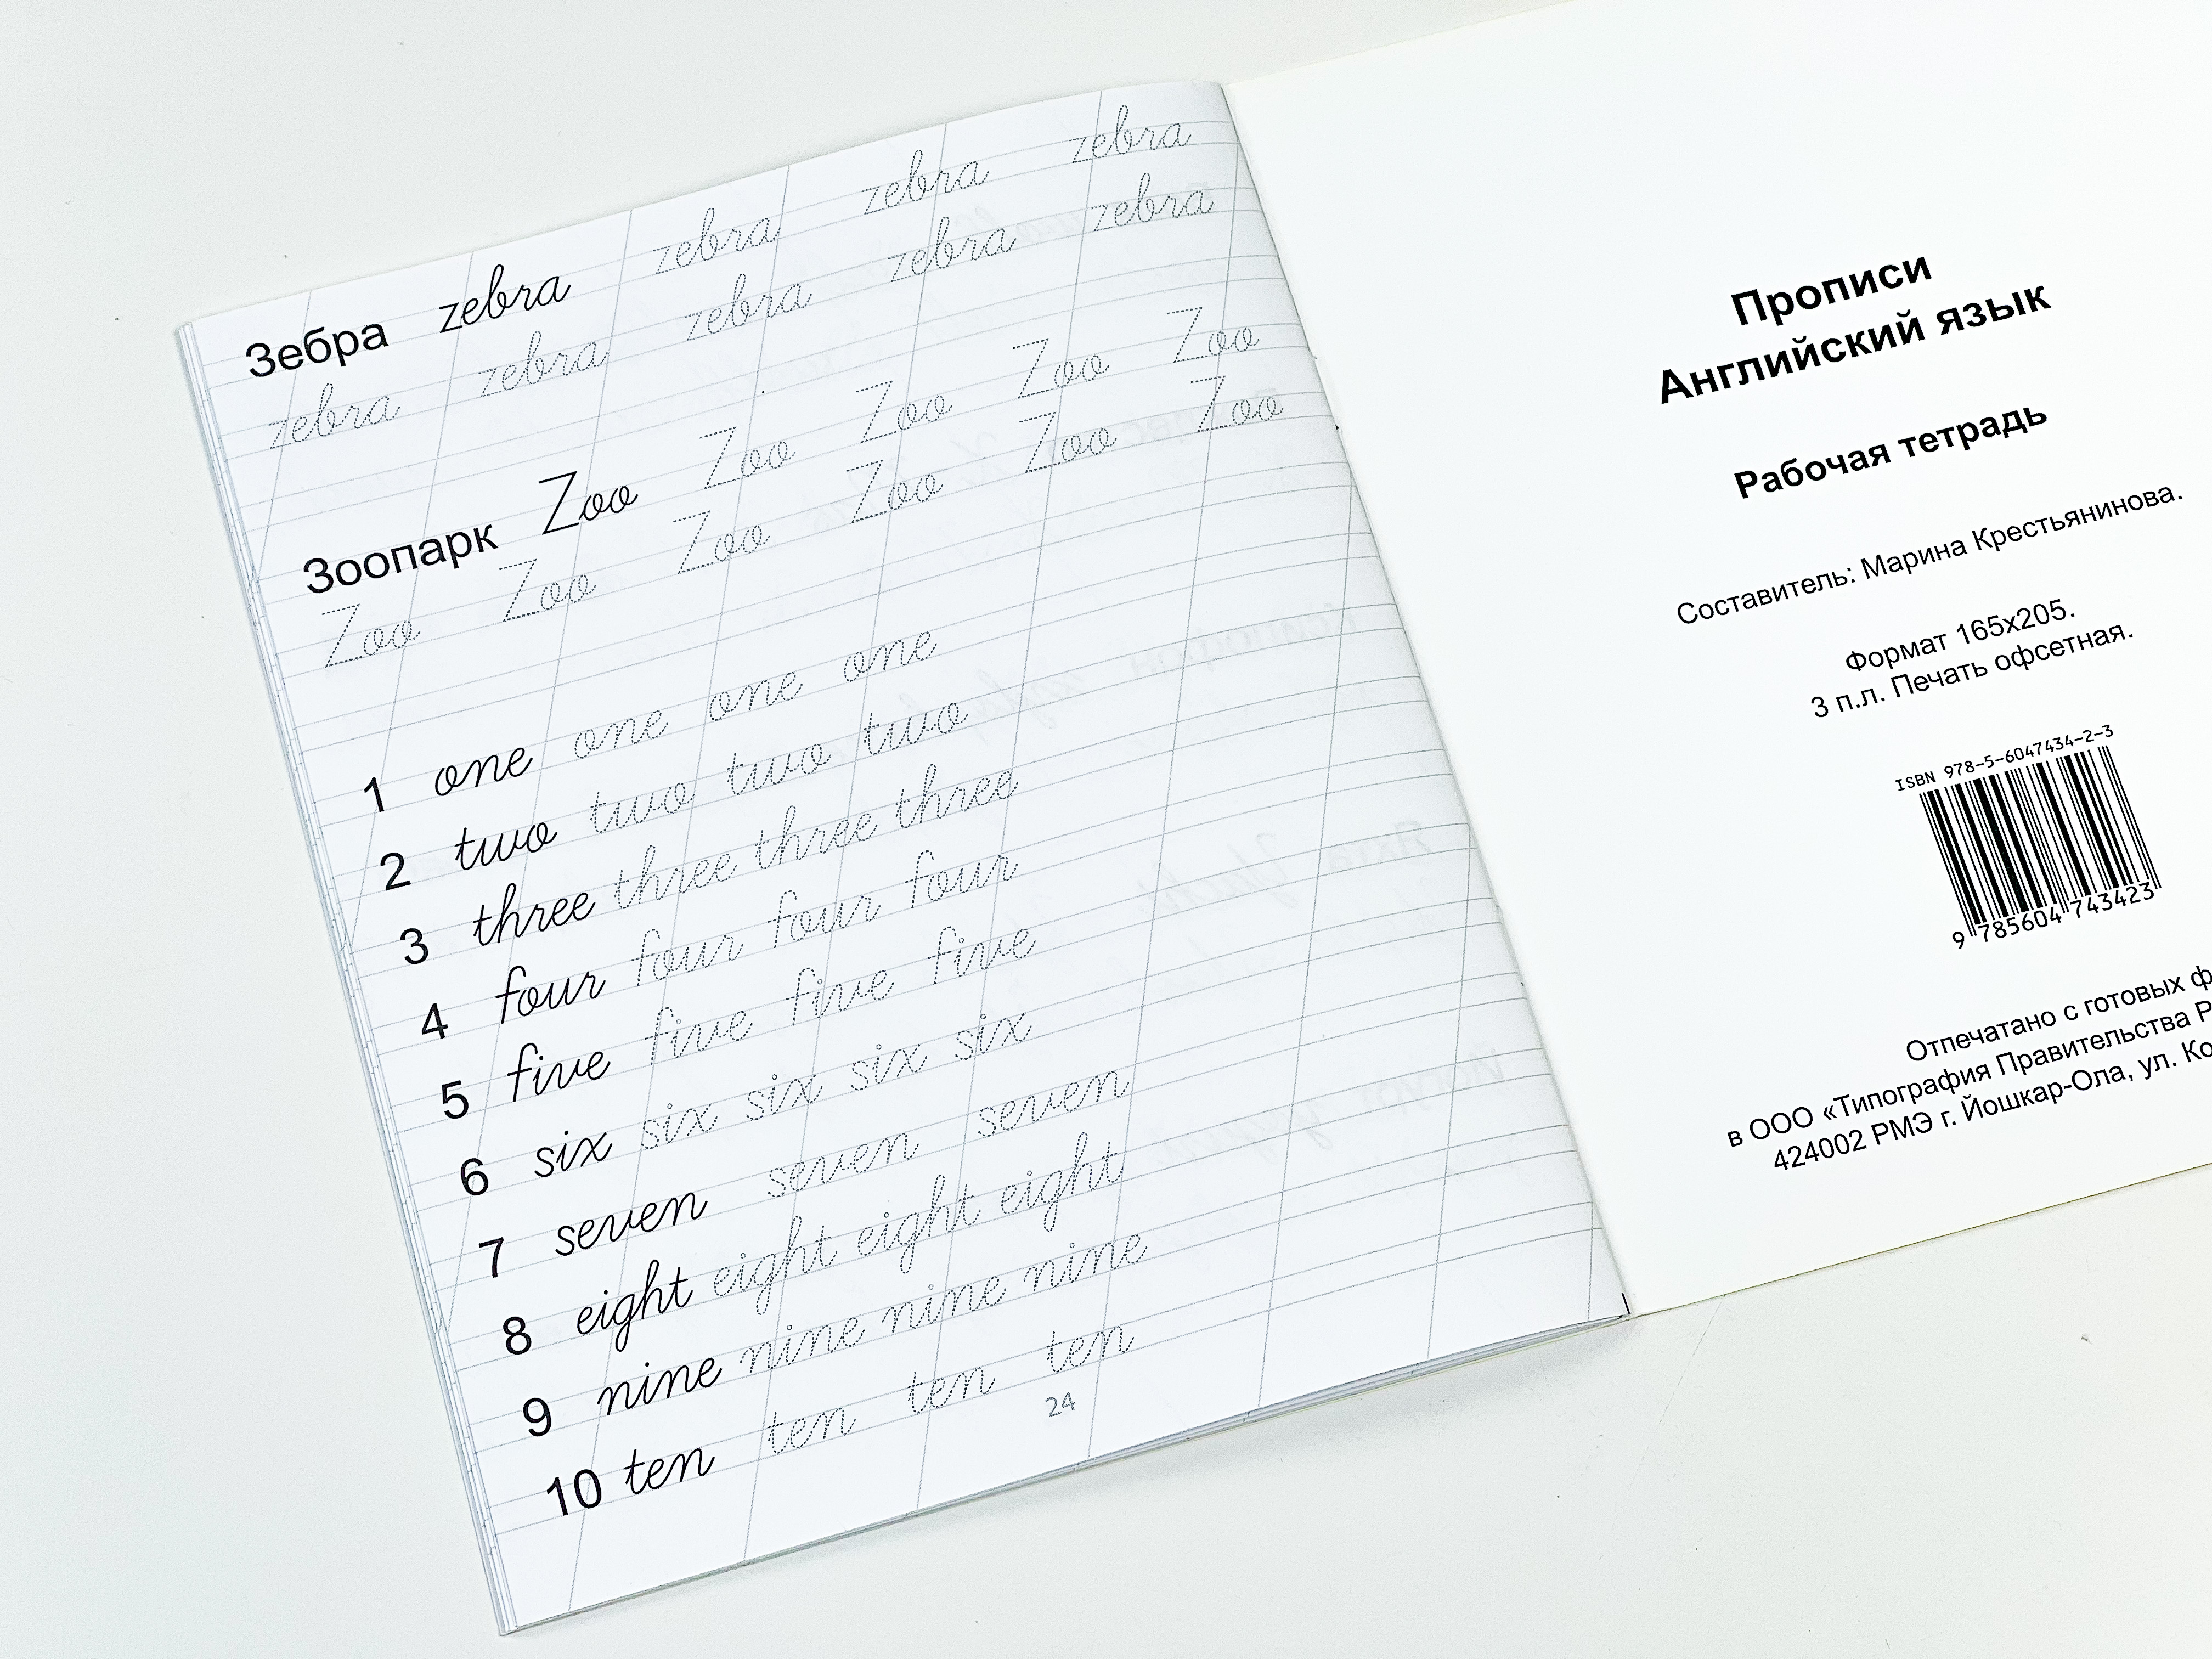 Зебра zebra zebra zebra zebra
zebra zebra zebra zebra zebra
Зоопарк Zoo Zoo Zoo Zoo Zoo
Zoo Zoo Zoo Zoo Zoo Zoo
1 one one one one
2 two two two two
3 three three three three
4 four four four four
5 five five five five
6 six six six six six
7 seven seven seven
8 eight eight eight eight
9 nine nine nine nine
10 ten ten ten ten
24
Прописи
Английский язык
Рабочая тетрадь
Составитель: Марина Крестьянинова.
Формат 165x205.
3 п.л. Печать офсетная.
ISBN 978-5-6047434-2-3
9 785604 743423
Отпечатано с готовых
в ООО «Типография Правительства
424002 РМЭ г. Йошкар-Ола, ул.